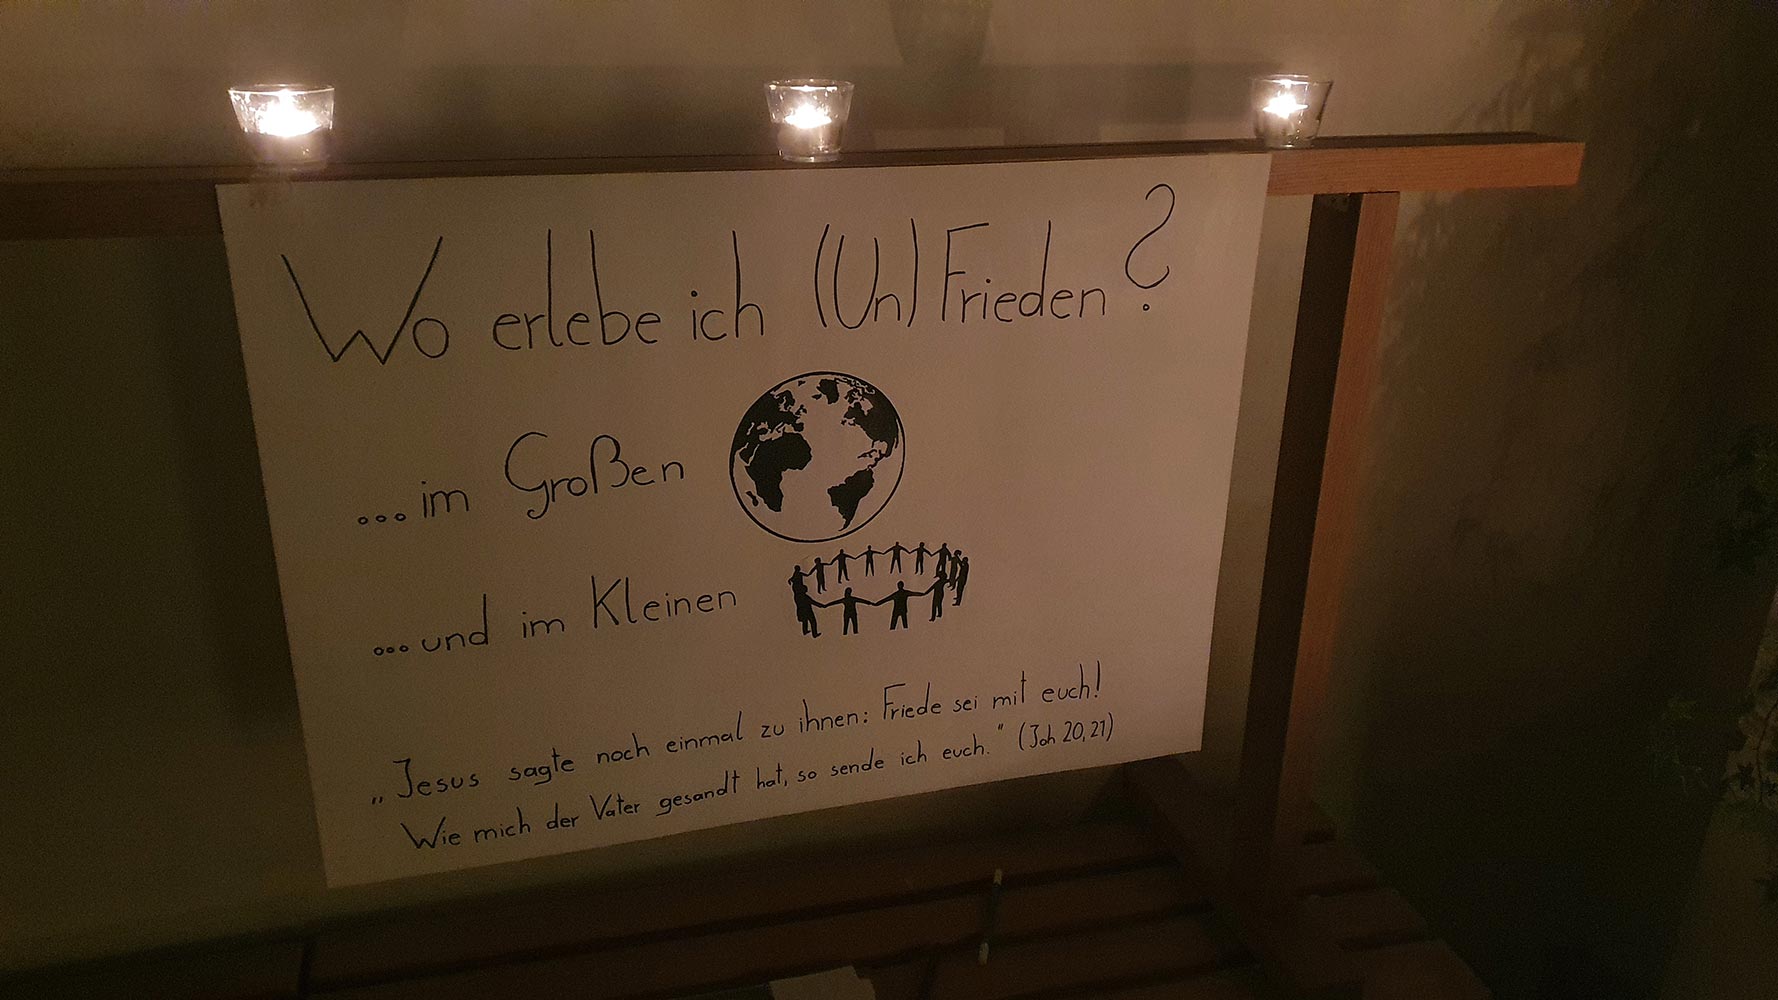 Wo erlebe ich (Un) Frieden?
...im Großen
...und im Kleinen
„Jesus sagte noch einmal zu ihnen: Friede sei mit euch!
Wie mich der Vater gesandt hat, so sende ich euch." (Joh 20,21)